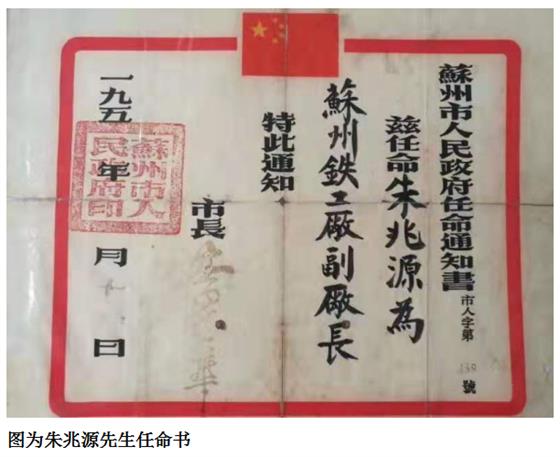 蘇州市人民政府任命通知書
市人字第 439 號
兹任命朱兆源為
蘇州鉄工廠副廠長
特此通知
市長
一九五 年 月 日
蘇州市人
民政府印
图为朱兆源先生任命书